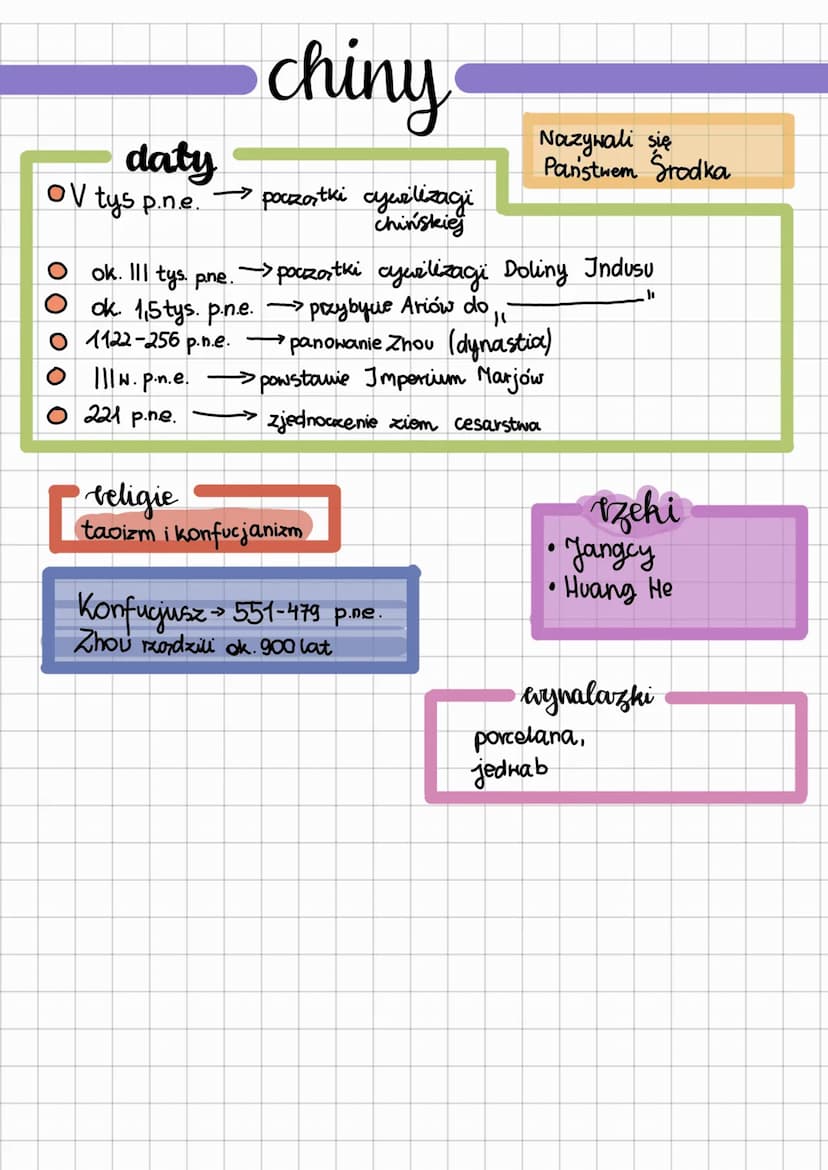 chiny
Nazywali się
Państwem Środka
daty
V tys p.n.e. → początki cywilizacji
chińskiej
ok. III tys. p.n.e. → początki cywilizacji Doliny Indusu
ok. 1,5 tys. p.n.e. → przybycie Ariów do „ ——— "
1122-256 p.n.e. → panowanie Zhou (dynastia)
III w. p.n.e. → powstanie Imperium Marjów
221 p.n.e. → zjednoczenie ziem cesarstwa
religie
taoizm i konfucjanizm
rzeki
• Jangcy
• Huang He
Konfucjusz → 551-479 p.n.e.
Zhou rządzili ok. 900 lat
wynalazki
porcelana,
jedwab